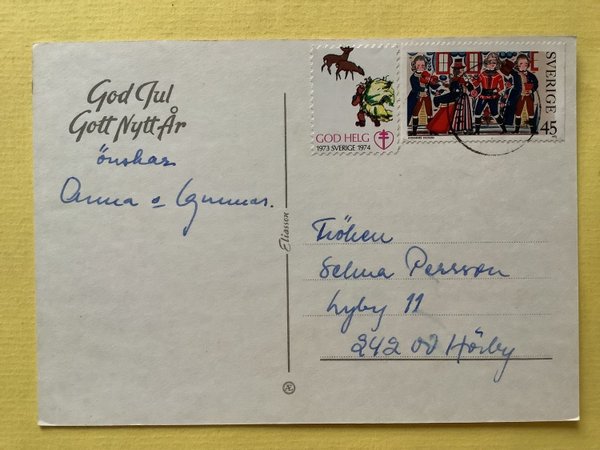 God Jul
Gott Nytt År
önskar
Anna o Gunnar.
GOD HELG
1973 SVERIGE 1974
SVERIGE
45
Eliasson
Fröken
Selma Persson
Lyby 11
242 00 Hörby
Æ